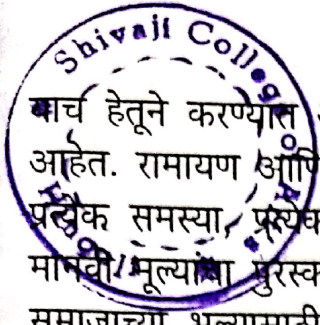 Shivaji College
याच हेतूने करण्यात
आहेत. रामायण आणि
प्रत्येक समस्या, प्रत्येक
मानवी मूल्यांचा पुरस्क
समाजाच्या भल्यासाठी